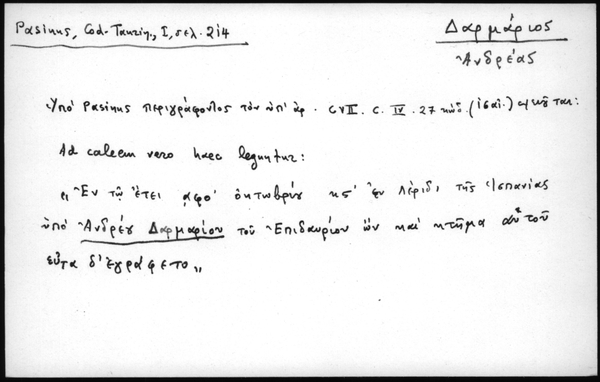 Pasinus, Cod. Taurin., I, σελ. 214
Δαρμάριος
Ἀνδρέας
Ὑπὸ Pasinus περιγράφοντος τὸν ὑπ' ἀρ. C VII. C. IV. 27 κώδ. (ἰσαι.)
Ad calcem vero haec leguntur:
„Ἐν τῷ ἔτει ͵αφο' ὀκτωβρίῳ κς' ἐν Λέριδι τῆς Ἱσπανίας
ὑπὸ Ἀνδρέου Δαρμαρίου τοῦ Ἐπιδαυρίου ὢν καὶ κτῆμα αὐτοῦ
εὖτα δ' ἐγράφετο„